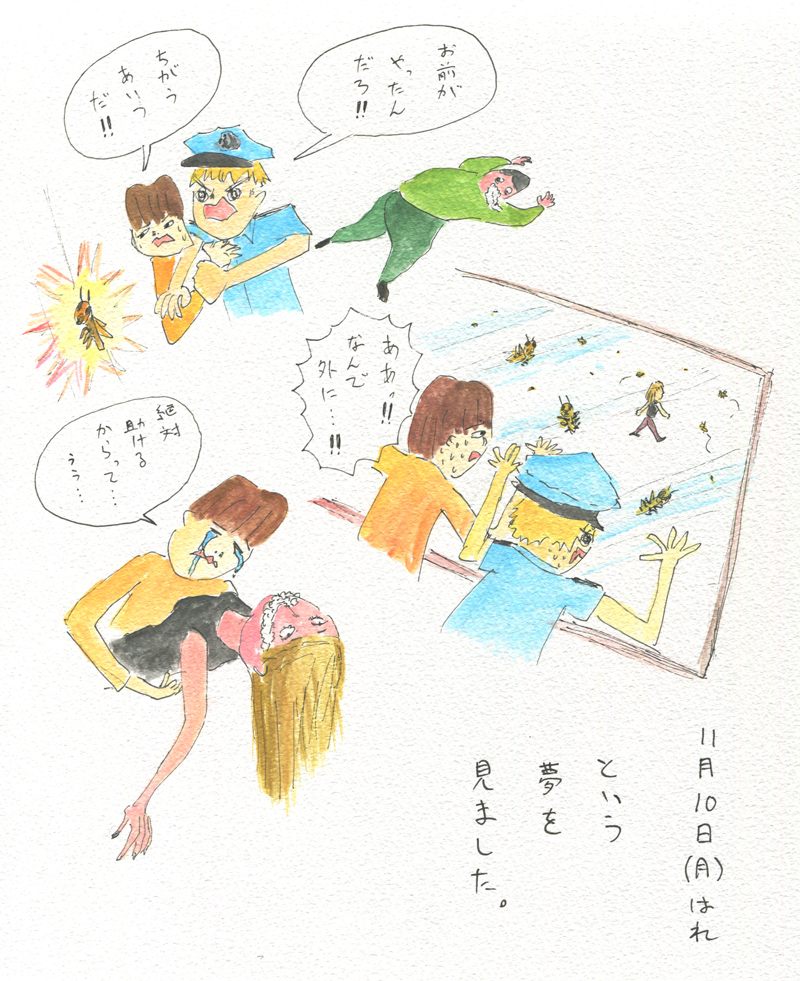 お前が
やったん
だろ!!
ちがう
あいつ
だ!!
ああっ!!
なんで
外に…!!
絶対
助ける
からって…
うう…
11月10日(月)はれ
という
夢を
見ました。